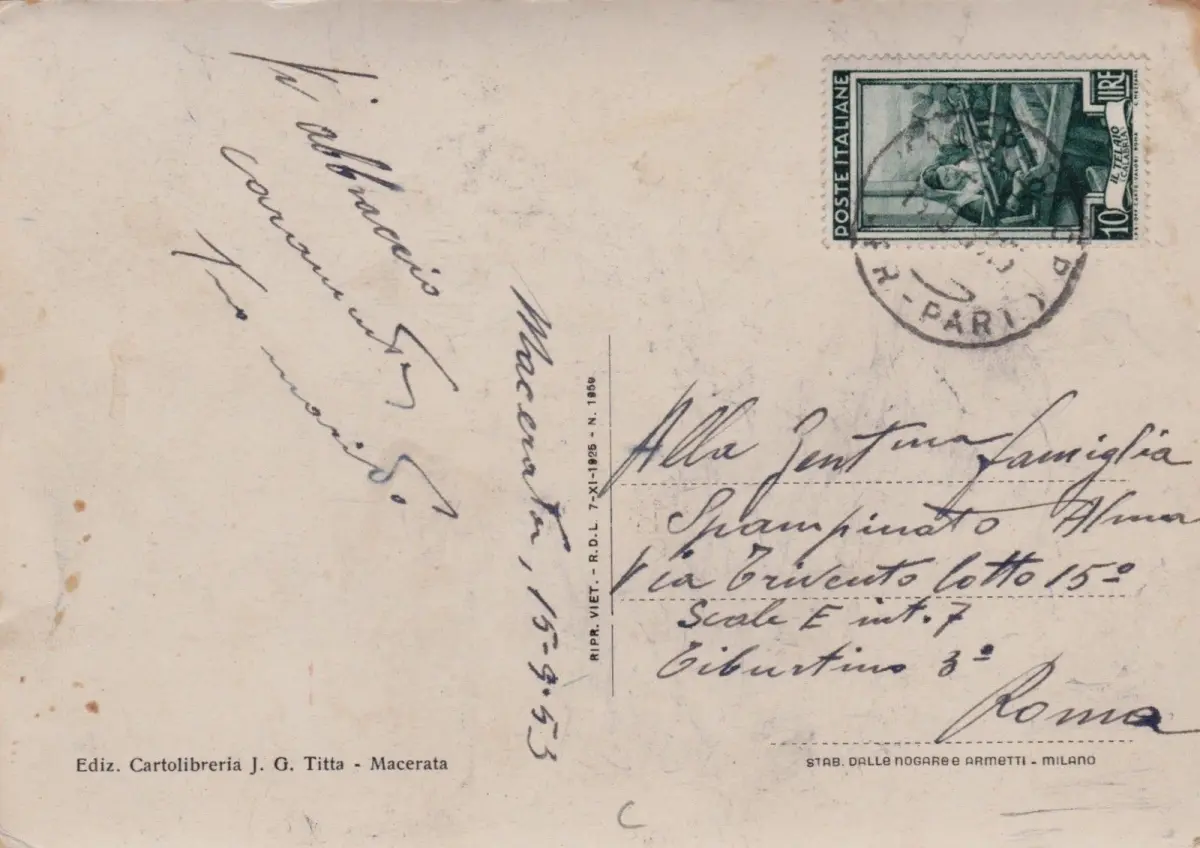 Vi abbraccio
caramente
Tuo marito
Macerata, 15-9-53
RIPR. VIET. - R.D.L. 7-XI-1925 - N. 1959
POSTE ITALIANE
LIRE
10
IL TELAIO
(CALABRIA)
R - PAR
Alla Gent.ma famiglia
Spampinato Alma
Via Trivento lotto 15º
Scale E int. 7
Tiburtino 3º
Roma
Ediz. Cartolibreria J. G. Titta - Macerata
STAB. DALLE NOGARE e ARMETTI - MILANO
C